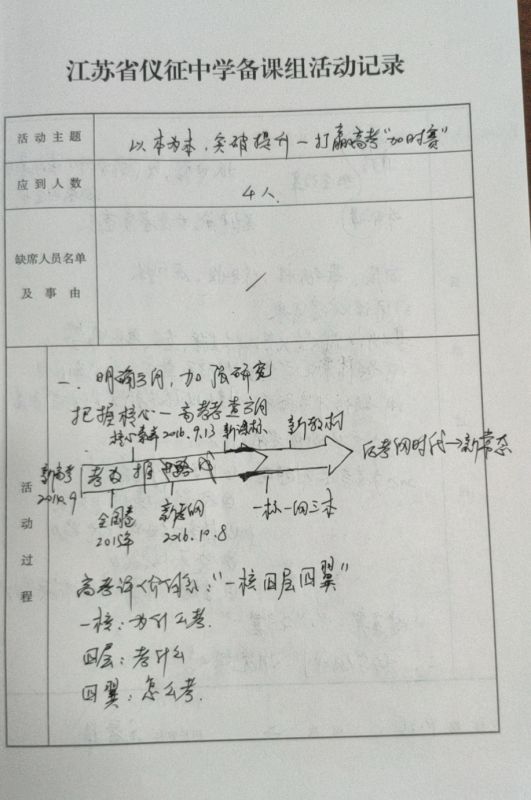 江苏省仪征中学备课组活动记录
活动主题 以本为本,突破提升一打赢高考"加时赛"
应到人数 4人.
缺席人员名单
及事由 /
活动过程
一、明确方向,加强研究
把握核心一高考考查方向
核心素养 2016.9.13 新课标 新教材
新高考 后考纲时代→新常态
2014.9 考改推
全国卷 新考纲 一标一纲三本
2015年 2016.10.8
高考评价体系:"一核四层四翼"
一核:为什么考.
四层:考什么
四翼:怎么考.